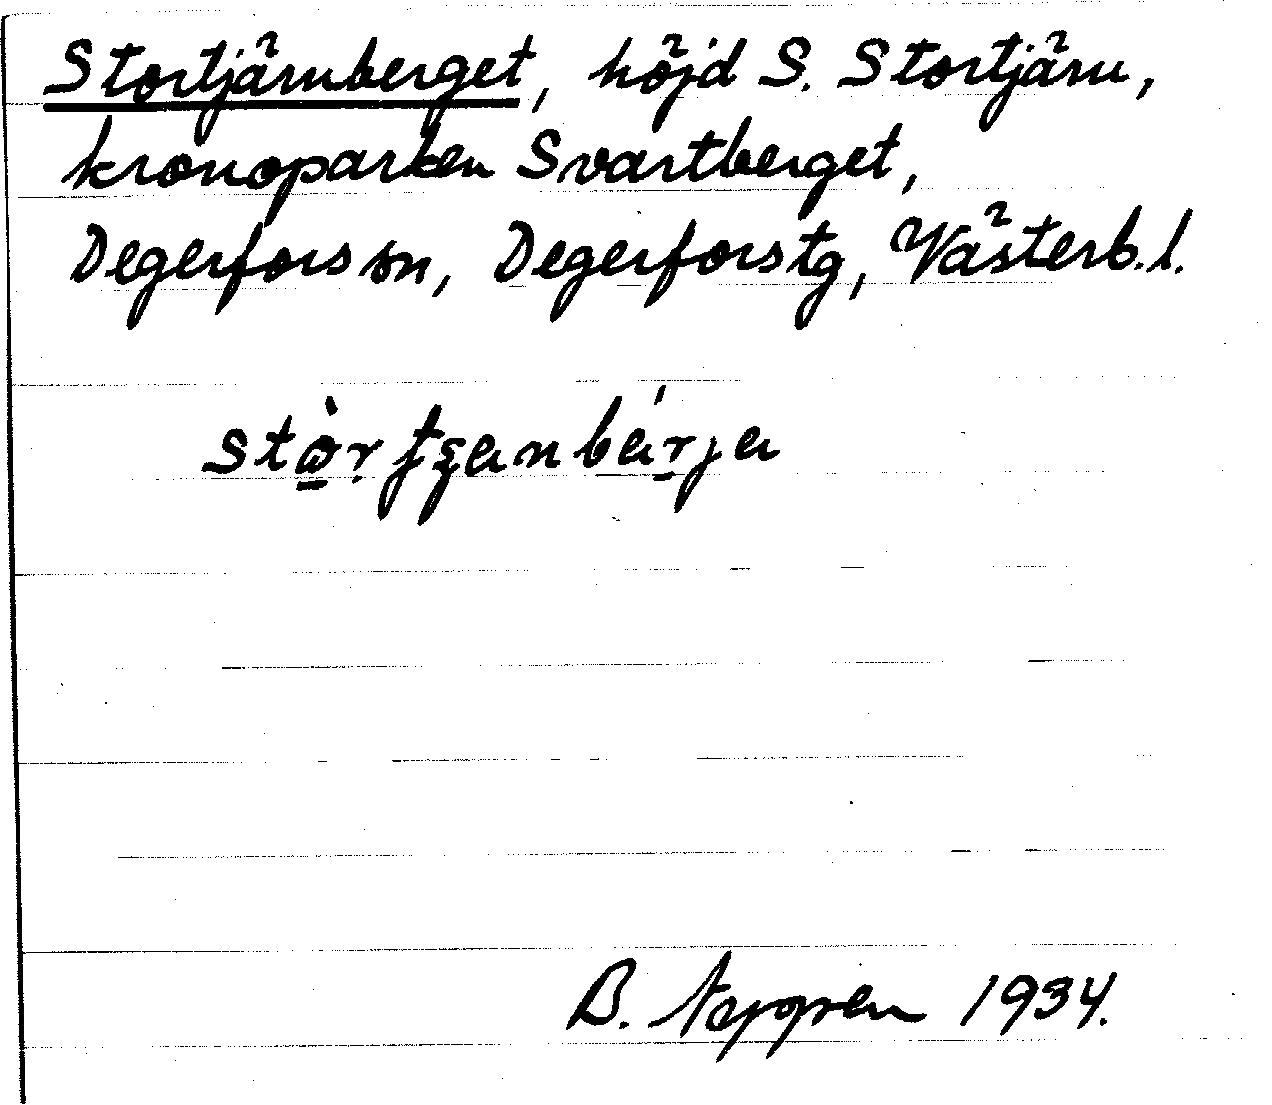 Stortjärnberget, höjd S. Stortjärn,
kronoparken Svartberget,
Degerfors sn, Degerfors tg, Västerb. l.
B. 1934.